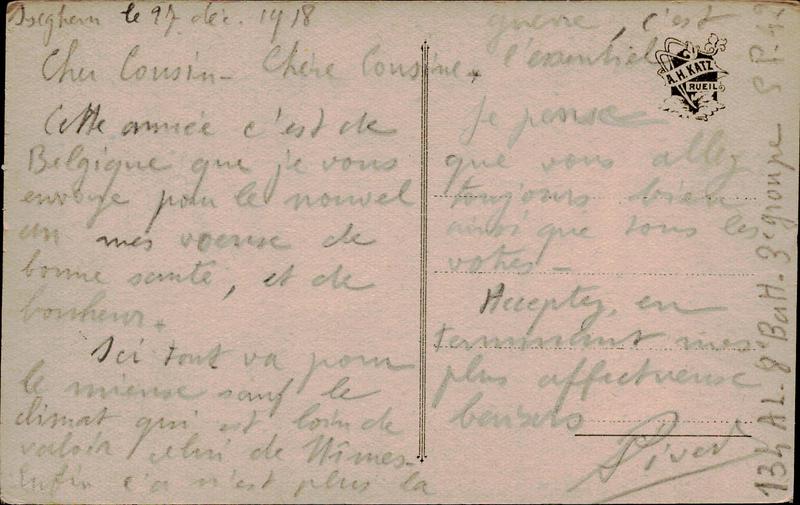 Iseghem le 27 déc. 1918
Cher Cousin - Chère Cousine.
Cette année c'est de
Belgique que je vous
envoye pour le nouvel
an mes voeuse de
bonne santé, et de
bonheur.
Ici tout va pour
le mieuse sauf le
climat qui est loin de
valoir celui de Nîmes.
Enfin ça n'est plus la
guerre, c'est
l'essentiel
Je pense
que vous allez
toujours bien
ainsi que tous les
votres -
Acceptez, en
terminant mes
plus affectueuse
baisers
A.H. KATZ
RUEIL
134 A.L. 8e Batt. 3e groupe S.P.